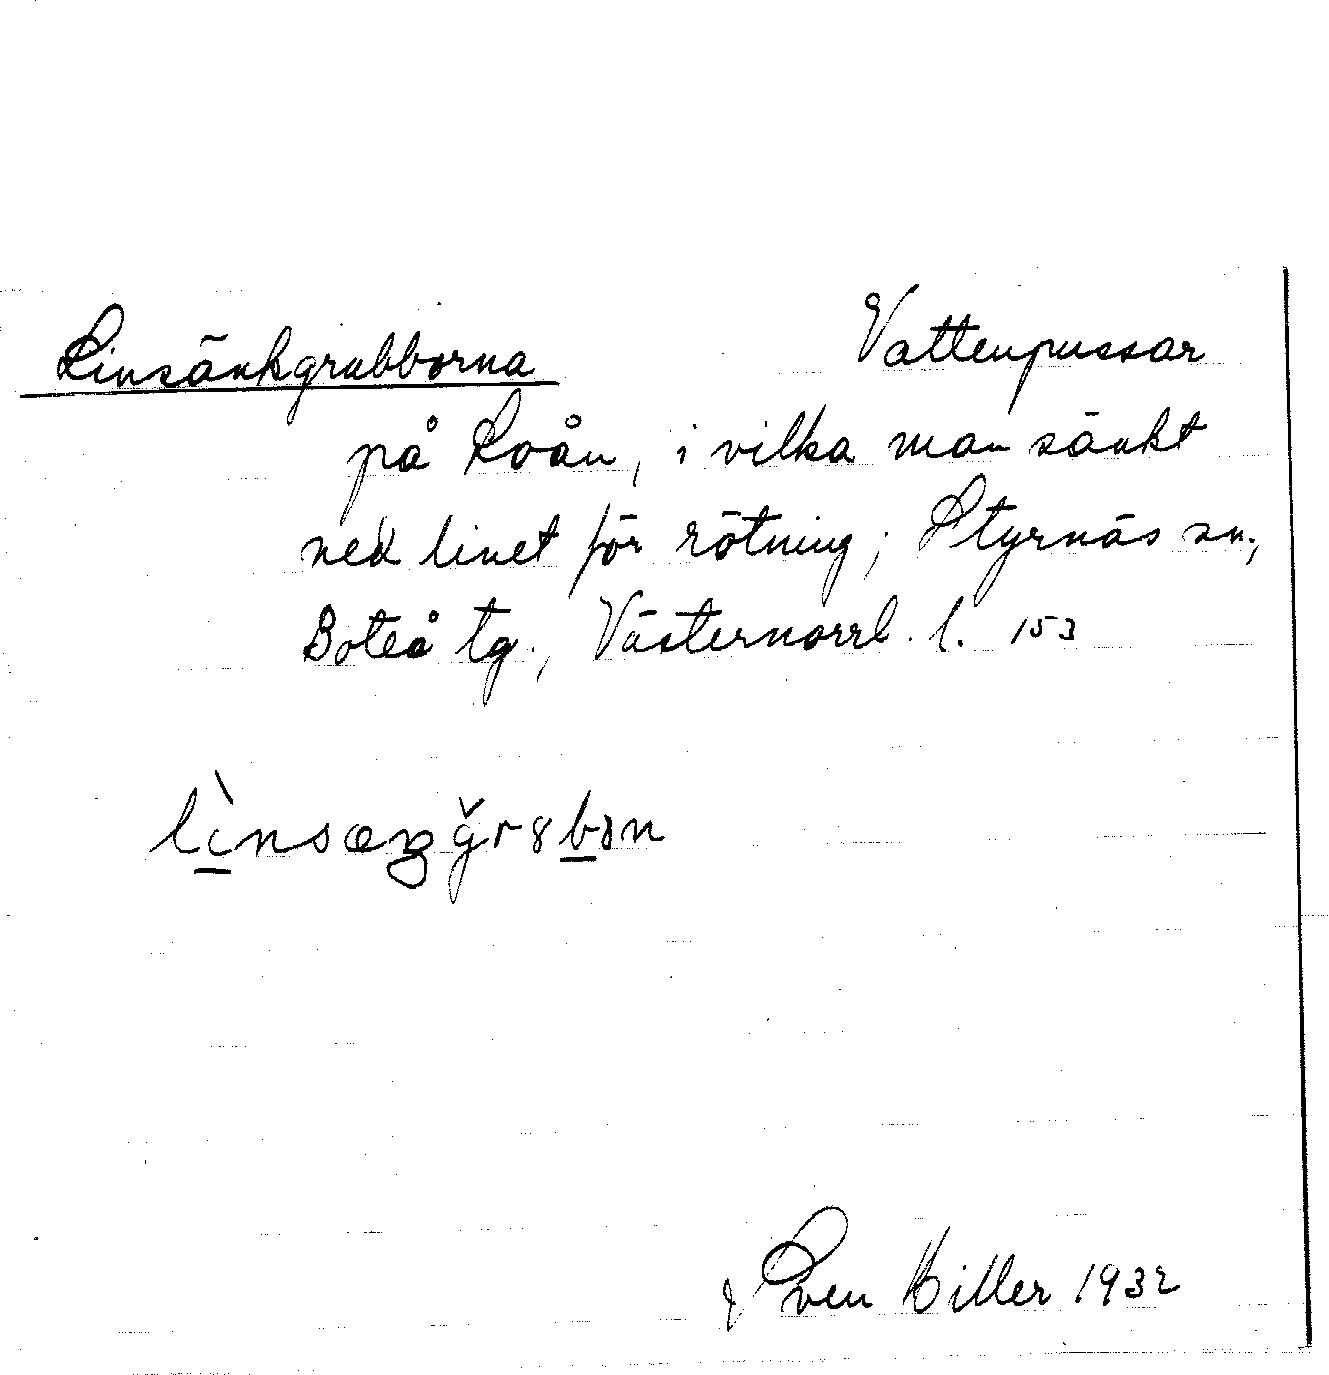 Linsänkgrubborna Vattenpussar
på Loån, i vilka man sänkt
ned linet för rötning; Styrnäs sn.,
Boteå tg., Västernorrl. l. 153
Sven Hiller 1932